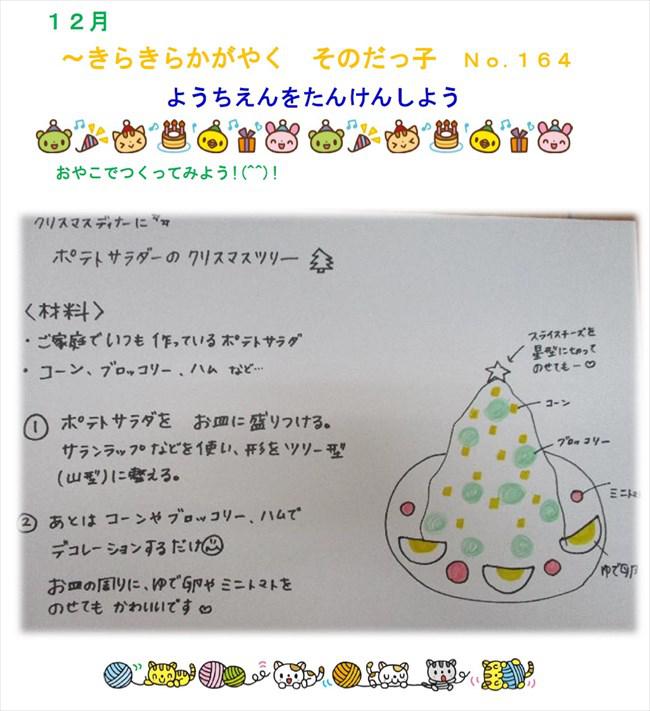 12月
～きらきらかがやく　そのだっ子　Ｎｏ.１６４
ようちえんをたんけんしよう
おやこでつくってみよう！(^^)！
クリスマスディナーに
ポテトサラダーの クリスマスツリー
〈材料〉
・ご家庭でいつも 作っている ポテトサラダ
・コーン、ブロッコリー、ハム など…
① ポテトサラダを お皿に盛りつける。
サランラップなどを使い、形をツリー型
(山型)に整える。
② あとは コーンや ブロッコリー、ハムで
デコレーションするだけ
お皿の周りに、ゆで卵や ミニトマトを
のせても かわいいです♡
スライスチーズを
星型に切って
のせてもー♡
コーン
ブロッコリー
ミニトマ
ゆで卵